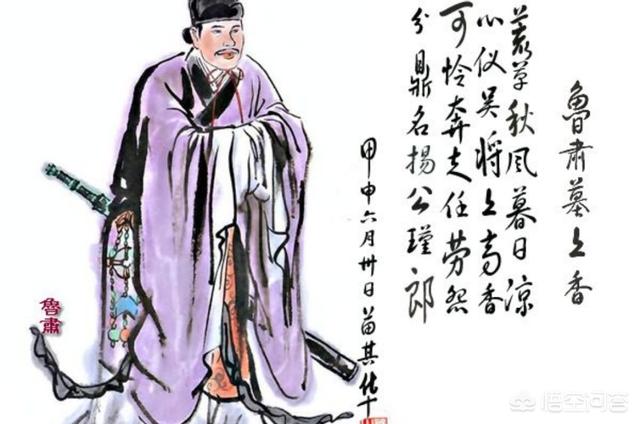 魯肃墓上香
蓑草秋风暮日涼
心仪吴将上高香
可怜奔走任劳怨
分鼎名揚公瑾郎
甲申六月卅日苗其
魯肅
悟空问答